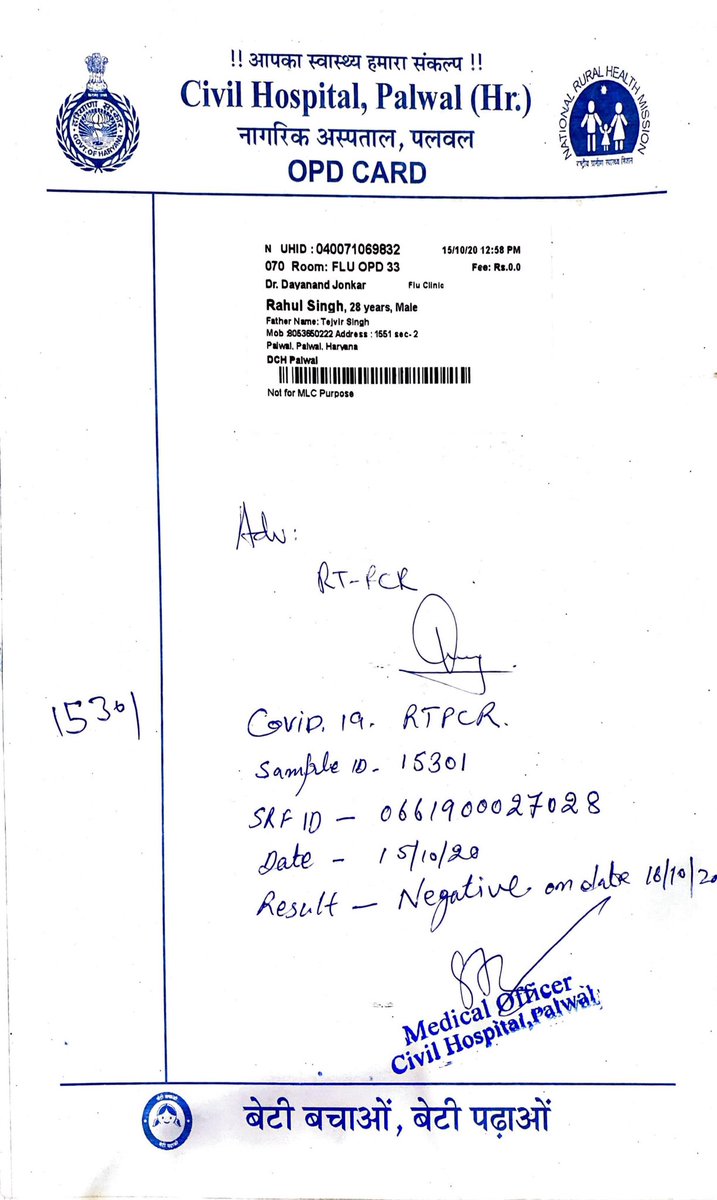 !! आपका स्वास्थ्य हमारा संकल्प !!
Civil Hospital, Palwal (Hr.)
नागरिक अस्पताल, पलवल
OPD CARD
हरियाणा सरकार
GOVT. OF HARYANA
NATIONAL RURAL HEALTH MISSION
राष्ट्रीय ग्रामीण स्वास्थ्य मिशन
N UHID : 040071069832 15/10/20 12:58 PM
070 Room: FLU OPD 33 Fee: Rs.0.0
Dr. Dayanand Jonkar Flu Clinic
Rahul Singh, 28 years, Male
Father Name: Tejvir Singh
Mob :8053650222 Address : 1551 sec- 2
Palwal, Palwal, Haryana
DCH Palwal
Not for MLC Purpose
Adv:
RT-PCR
15301
Covid. 19. RTPCR.
Sample ID- 15301
SRF ID – 0661900027028
Date - 15/10/20
Result – Negative on date 18/10/20
Medical Officer
Civil Hospital,Palwal
बेटी बचाओ
बेटी पढ़ाओ
बेटी बचाओं, बेटी पढ़ाओं